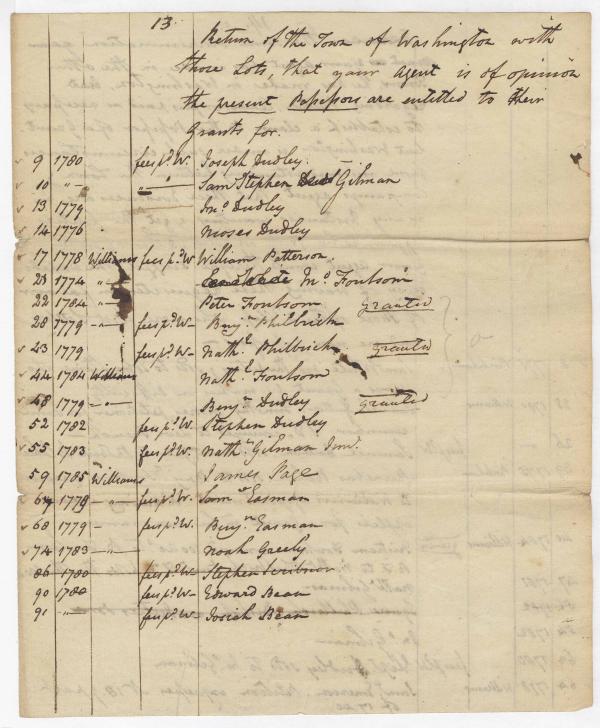 13
Return of the Town of Washington with
those Lots, that your Agent is of opinion
the present Possessors are entitled to their
Grants for.
9 1780 fees pd. W. Joseph Dudley.
10 "- "- Stephen Gilman
13 1779 Jno Dudley
14 1776 Moses Dudley
17 1778 Williams fees pd. W William Patterson.
21 1774 "- Jno Foulsom
22 1784 "- Peter Foulsom granted
28 1779 -"- fees pd. W- Benjn Philbrick
43 1779 fees pd. W- Nathl. Philbrick granted
44 1784 Williams Nathl Foulsom
48 1779 -"- Benjn Dudley granted
52 1782 fees pd. W. Stephen Dudley
55 1783 fees pd. W. Nathl. Gilman Junr.
59 1785 Williams James Page
64 1778 -"- fees pd. W. Saml Easman
68 1779 - fees pd. W. Benjn Easman
74 1783 -"- Noah Greely
86 1780 fees pd. W- Stephen Scribnor
90 1780 fees pd. W. Edward Bean
91 "- fees pd. W- Josiah Bean